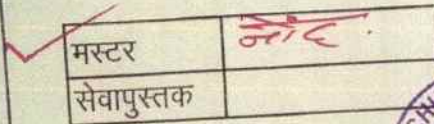 मस्टर नोंद.
सेवापुस्तक